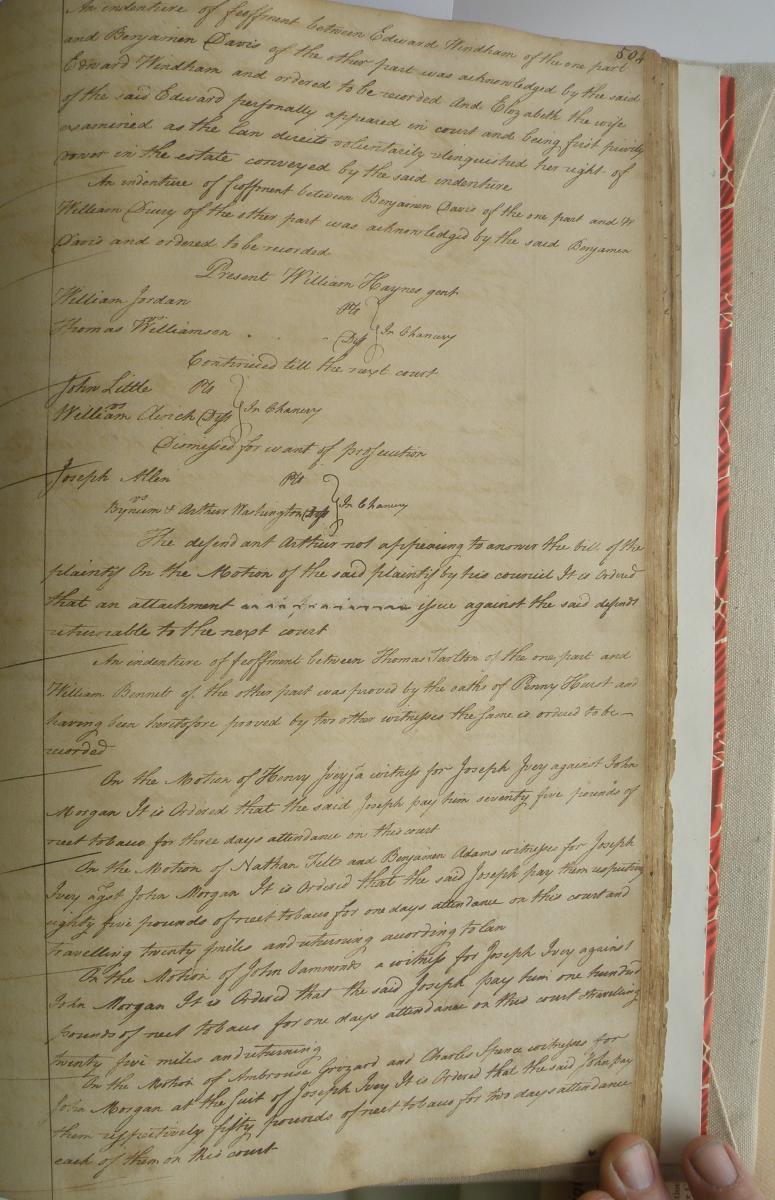 504
An indenture of feoffment between Edward Windham of the one part
and Benjamen Davis of the other part was acknowledged by the said
Edward Windham and ordered to be recorded And Elizabeth the wife
of the said Edward personally appeared in court and being first privily
examined as the law directs voluntarily relinquished her right of
Dower in the estate conveyed by the said indenture
An indenture of feoffment between Benjamen Davis of the one part and
William Drury of the other part was acknowledged by the said Benjamen
Davis and ordered to be recorded
Present William Haynes gent
William Jordan Plt
vs
Thomas Williamson Deft In Chancery
Continued till the next court
John Little Plt
vs
William Deft In Chancery
Dismissed for want of prosecution
Joseph Allen Plt
vs
Bynum & Arthur Washington Defts In Chancery
The defendant Arthur not appearing to answer the bill of the
plaintif On the Motion of the said plaintif by his council It is Ordered
that an attachment issue against the said defendt
returnable to the next court
An indenture of feoffment between Thomas Tarlton of the one part and
William Bennett of the other part was proved by the oath of Penny Hurst and
having been heretofore proved by two other witnesses the same is ordered to be
recorded
On the Motion of Henry Ivey a witness for Joseph Ivey against John
Morgan It is Ordered that the said Joseph pay him seventy five pounds of
neet tobacco for three days attendance on this court
On the Motion of Nathan Felts and Benjamen Adams witnesses for Joseph
Ivey agst John Morgan It is Ordered that the said Joseph pay them respecting
eighty five pounds of neet tobacco for one days attendance on this court and
travelling twenty miles and returning according to law
On the Motion of John Sammonds a witness for Joseph Ivey against
John Morgan It is Ordered that the said Joseph pay him one hundred
pounds of neet tobacco for one days attendance on this court travelling
twenty five miles and returning
On the Motion of Ambrouse Grizard and Charles Spence witnesses for
John Morgan at the suit of Joseph Ivey It is Ordered that the said John pay
them respectively fifty pounds of neet tobacco for two days attendance
each of them on this court